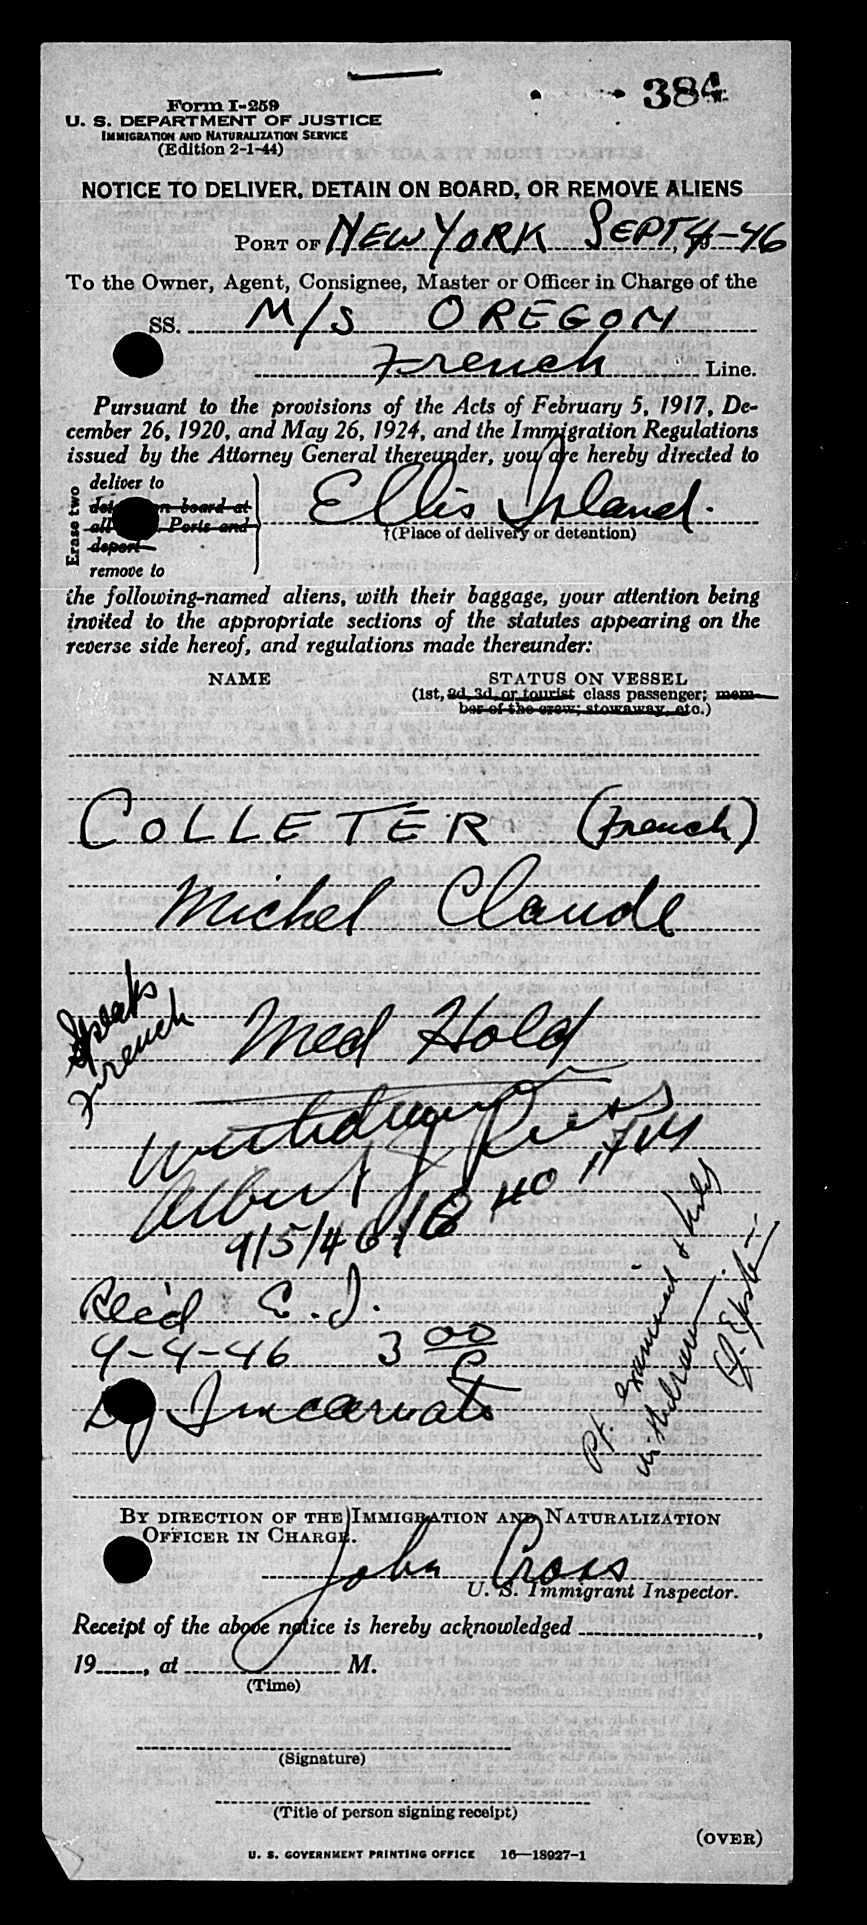 384
Form I-259
U. S. DEPARTMENT OF JUSTICE
IMMIGRATION AND NATURALIZATION SERVICE
(Edition 2-1-44)
NOTICE TO DELIVER, DETAIN ON BOARD, OR REMOVE ALIENS
PORT OF NEW YORK SEPT, 4-46
To the Owner, Agent, Consignee, Master or Officer in Charge of the
SS. M/S OREGON
French Line.
Pursuant to the provisions of the Acts of February 5, 1917, De-
cember 26, 1920, and May 26, 1924, and the Immigration Regulations
issued by the Attorney General thereunder, you are hereby directed to
Erase two
deliver to
on board at
all Ports and
deport
remove to
Ellis Island.
†(Place of delivery or detention)
the following-named aliens, with their baggage, your attention being
invited to the appropriate sections of the statutes appearing on the
reverse side hereof, and regulations made thereunder:
NAME STATUS ON VESSEL
(1st, 2d, 3d, or tourist class passenger; mem-
ber of the crew; stowaway, etc.)
COLLETER (French)
Michel Claude
Speaks
French
Med Hold
Withdrawn
Albert J
9/5/46
Rec'd E.I.
9-4-46 3 00 P
By Incarnato
Pt. examined & hold
withdrawn
BY DIRECTION OF THE IMMIGRATION AND NATURALIZATION
OFFICER IN CHARGE.
John Cross
U. S. Immigrant Inspector.
Receipt of the above notice is hereby acknowledged ,
19 , at M.
(Time)
(Signature)
(Title of person signing receipt)
(OVER)
U. S. GOVERNMENT PRINTING OFFICE 16—18927-1